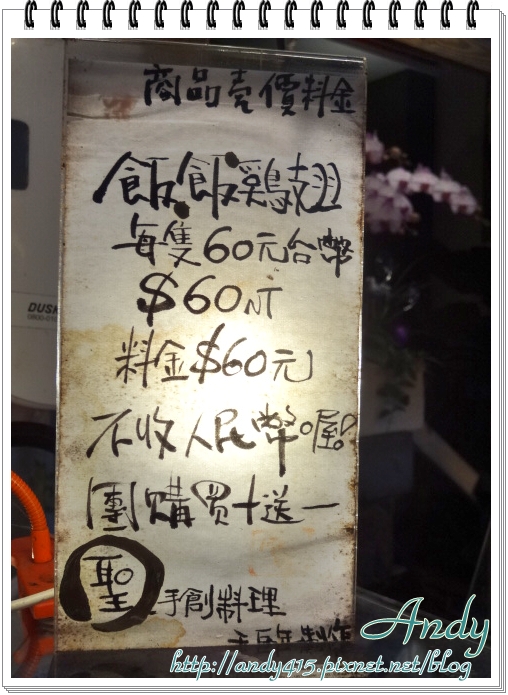 商品売價料金
飯飯鷄翅
每隻60元台幣
$60NT
料金$60元
不收人民幣喔!
團購買十送一
聖手創料理
制作
DUSK
Andy
http://andy415.pixnet.net/blog